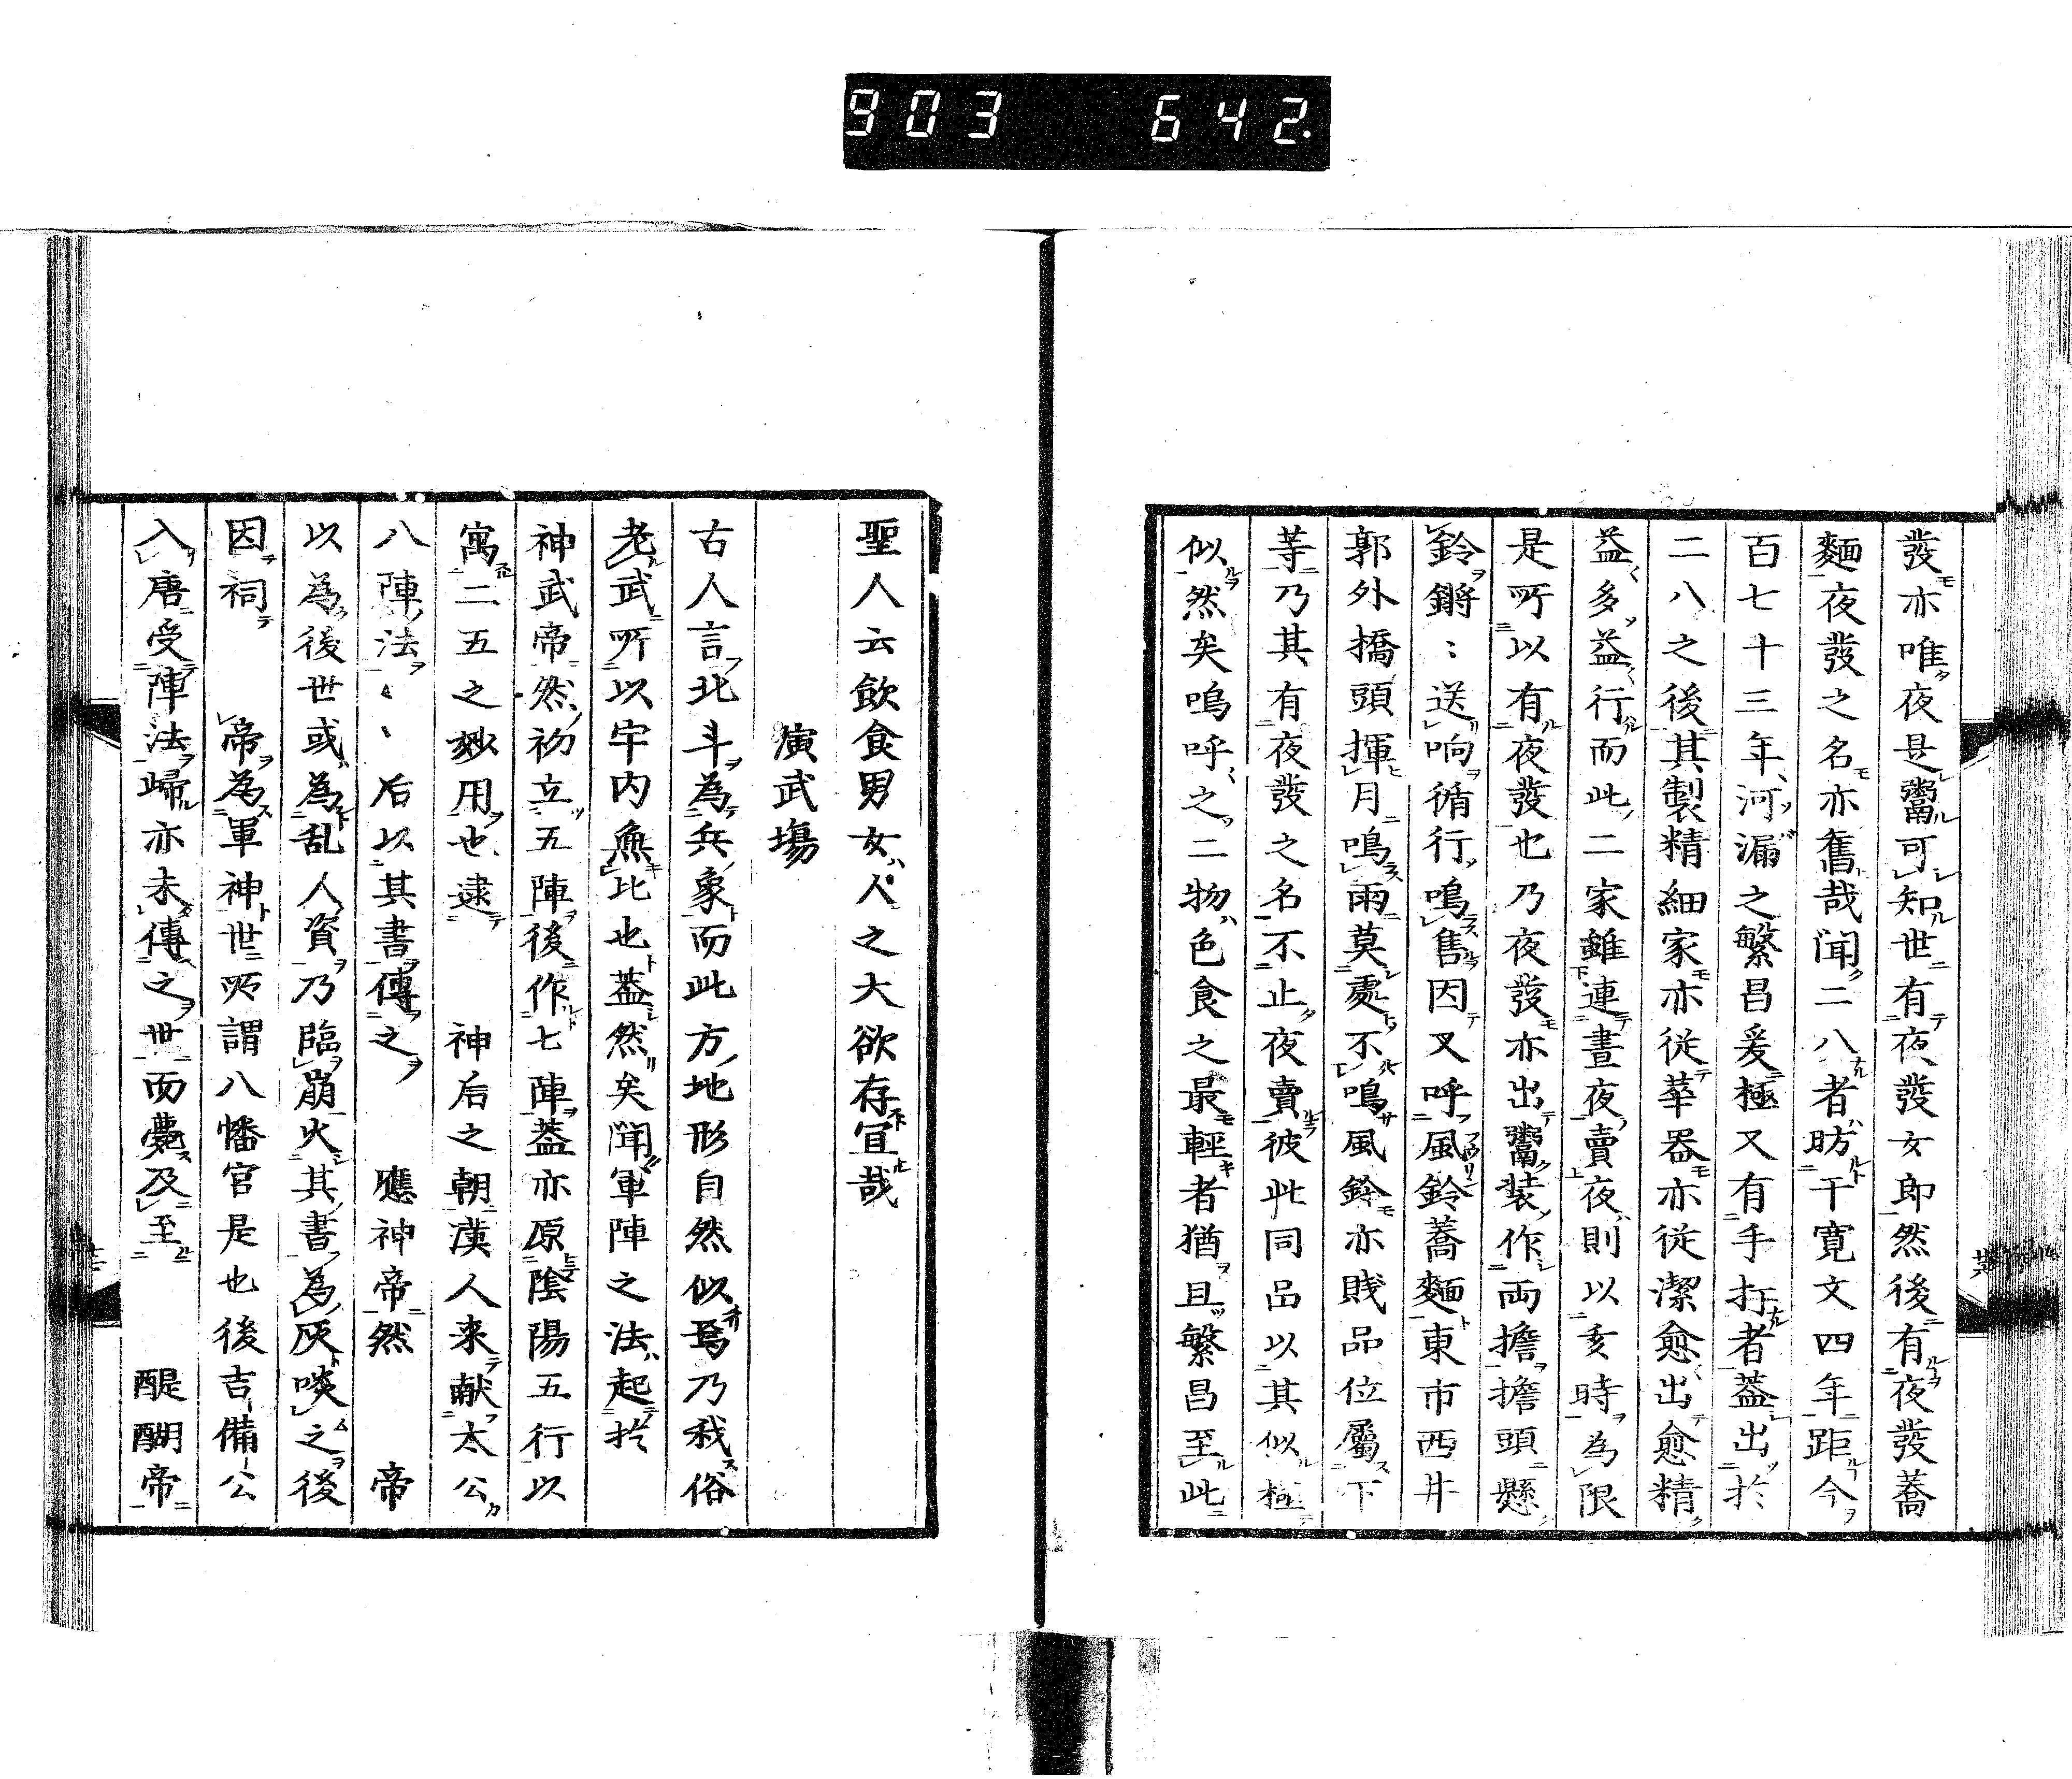 903 642.
發亦唯夜是鬻可知世有夜發女郎然後有夜發蕎
麵夜發之名亦舊哉聞二八者昉于寛文四年距今
百七十三年河漏之繁昌爰極又有手打者蓋出於
二八之後其製精細家亦従華器亦従潔愈出愈精
益多益行而此二家雖連晝夜賣夜則以亥時為限
是所以有夜發也乃夜發亦出鬻装作両擔擔頭懸
鈴鏘〻送响循行鳴售因又呼風鈴蕎麵東市西井
郭外橋頭揮月鳴雨莫處不鳴風鈴亦賎品位屬下
等乃其有夜發之名不止夜賣彼此同品以其似極
似然矣嗚呼之二物色食之最輕者猶且繁昌至此
聖人云飲食男女人之大欲存宜哉
演武場
古人言北斗為兵象而此方地形自然似焉乃我俗
老武所以宇内無比也蓋然矣聞軍陣之法起於
神武帝然初立五陣後作七陣蓋亦原陰陽五行以
寓二五之妙用也逮 神后之朝漢人来献太公
八陣法〻〻后以其書傳之 應神帝然 帝
以為後世或為乱人資乃臨崩火其書為灰啖之後
因祠 帝為軍神世所謂八幡宮是也後吉備公
入唐受陣法歸亦未傳之世而薨及至 醍醐帝